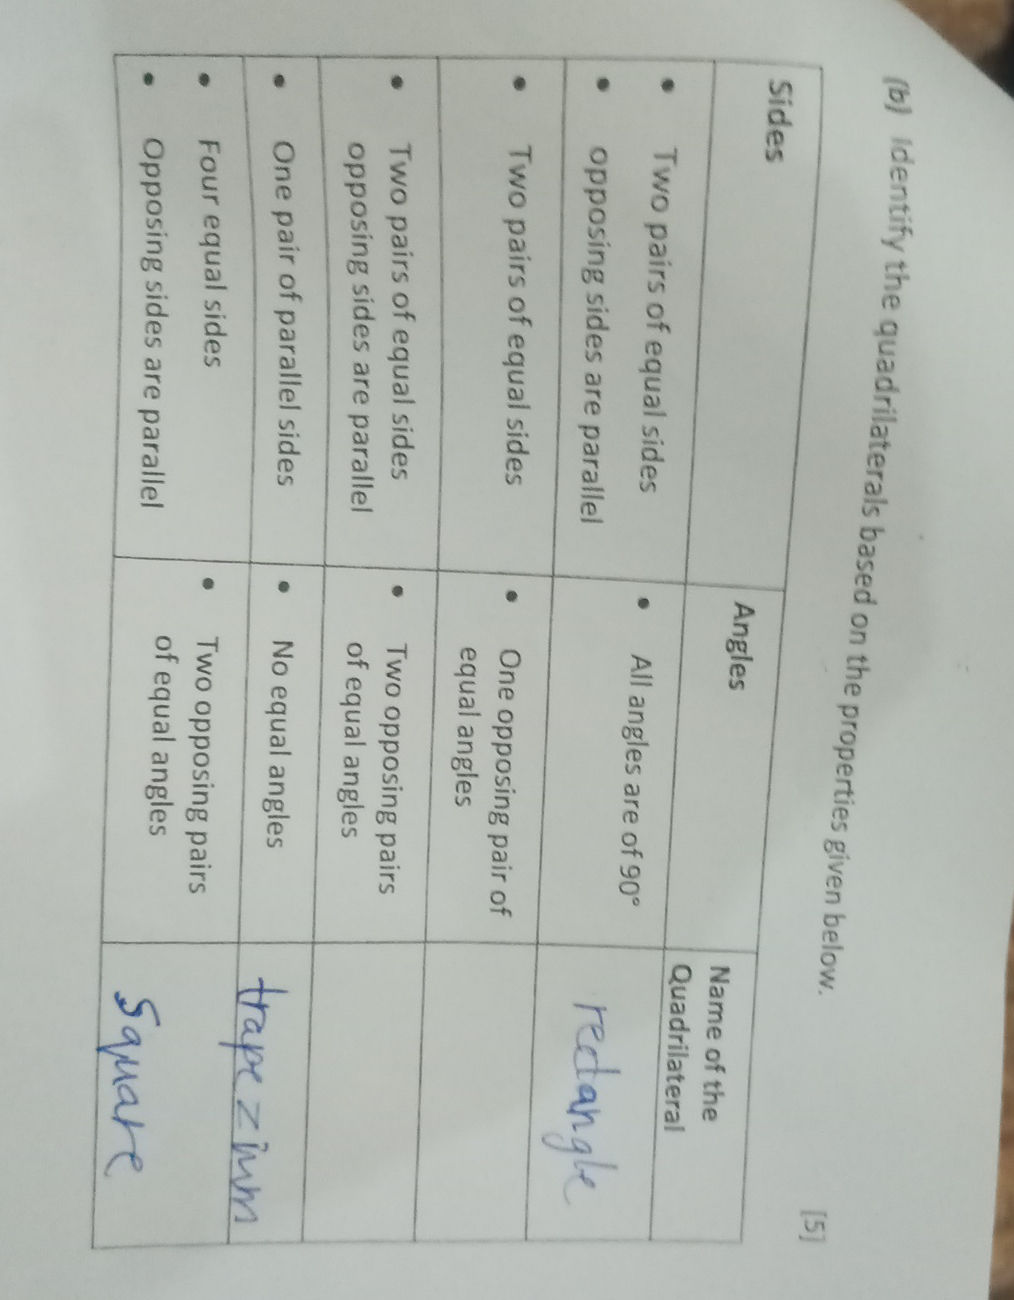 (b) Identify the quadrilaterals based on the properties given below.
[5]
Sides
Angles
Name of the
Quadrilateral
• Two pairs of equal sides
• opposing sides are parallel
• All angles are of 90°
rectangle
• Two pairs of equal sides
• One opposing pair of
equal angles
• Two pairs of equal sides
opposing sides are parallel
• Two opposing pairs
of equal angles
• One pair of parallel sides
• No equal angles
trapezium
• Four equal sides
• Opposing sides are parallel
• Two opposing pairs
of equal angles
Square